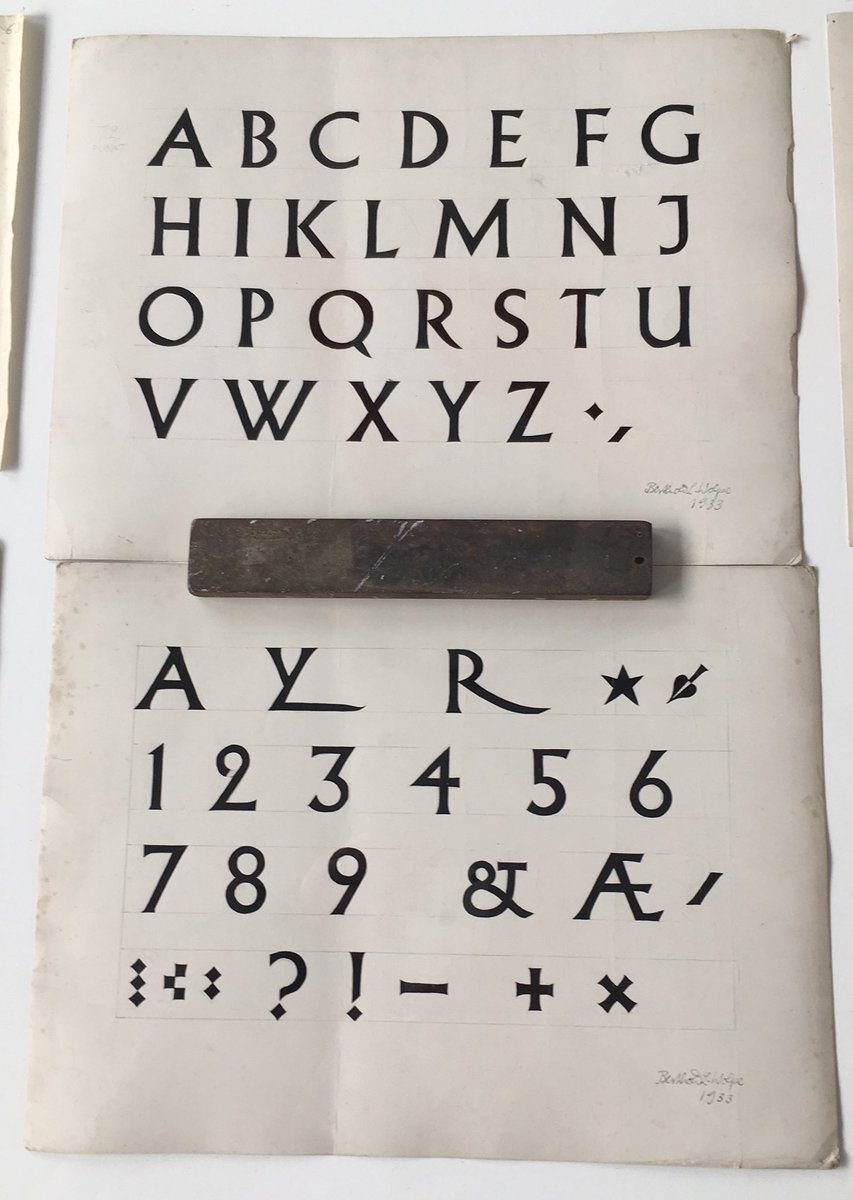 72
PUNKT
A B C D E F G
H I K L M N J
O P Q R S T U
V W X Y Z · ,
Berthold L. Wolpe
1933
A Y R ★
1 2 3 4 5 6
7 8 9 & Æ ,
? ! – + ×
Berthold L. Wolpe
1933